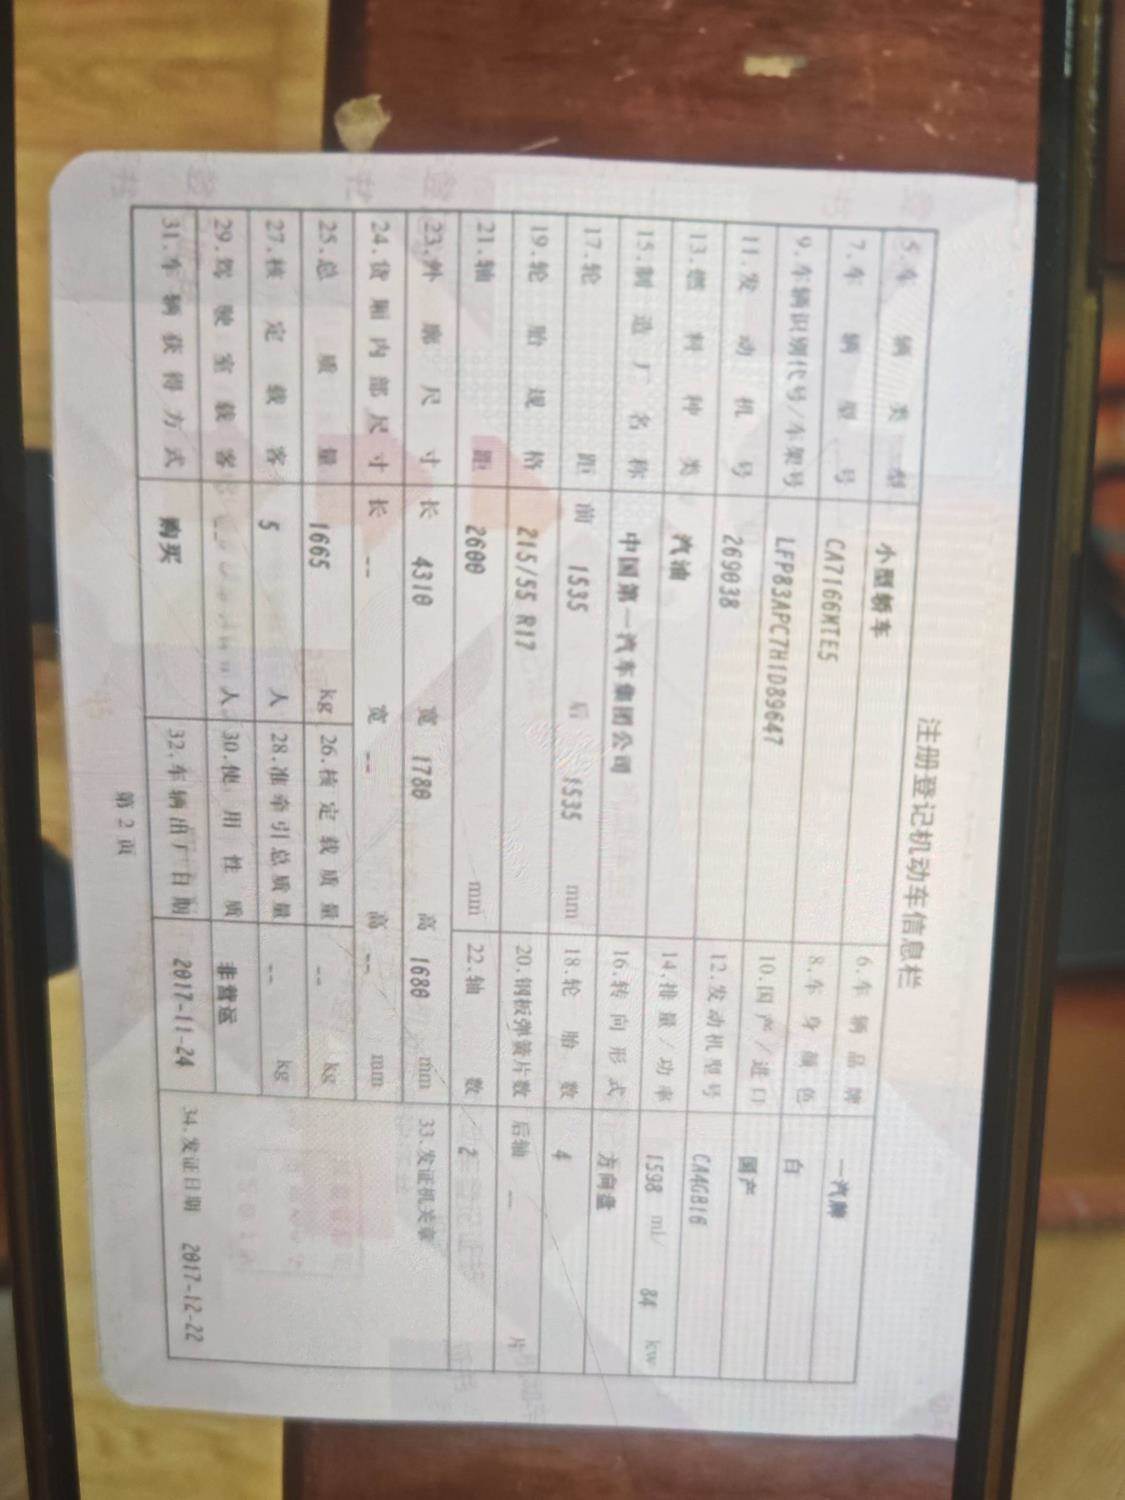 注册登记机动车信息栏
5.车辆类型 小型轿车 6.车辆品牌 一汽牌
7.车辆型号 CA7166MTE5 8.车身颜色 白
9.车辆识别代号/车架号 LFP83APC7H1D89647 10.国产/进口 国产
11.发动机号 269038 12.发动机型号 CA4GB16
13.燃料种类 汽油 14.排量/功率 1598 ml/ 84 kw
15.制造厂名称 中国第一汽车集团公司 16.转向形式 方向盘
17.轮距 前 1535 后 1535 mm 18.轮胎数 4
19.轮胎规格 215/55 R17 20.钢板弹簧片数 后轴 -- 片
21.轴距 2600 mm 22.轴数 2
23.外廓尺寸 长 4310 宽 1780 高 1680 mm 33.发证机关章
24.货厢内部尺寸 长 -- 宽 -- 高 -- mm
25.总质量 1665 kg 26.核定载质量 -- kg
27.核定载客 5 人 28.准牵引总质量 -- kg
29.驾驶室载客 人 30.使用性质 非营运
31.车辆获得方式 购买 32.车辆出厂日期 2017-11-24 34.发证日期 2017-12-22
第2页